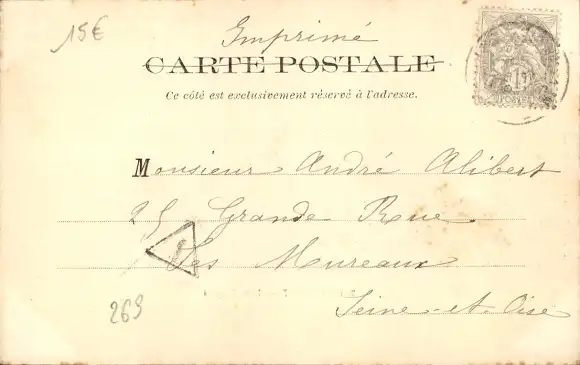 15€
Imprimé
CARTE POSTALE
Ce côté est exclusivement réservé à l'adresse.
1c
POSTES
Monsieur André Alibert
25 Grande Rue
Les Mureaux
Seine-et-Oise
269